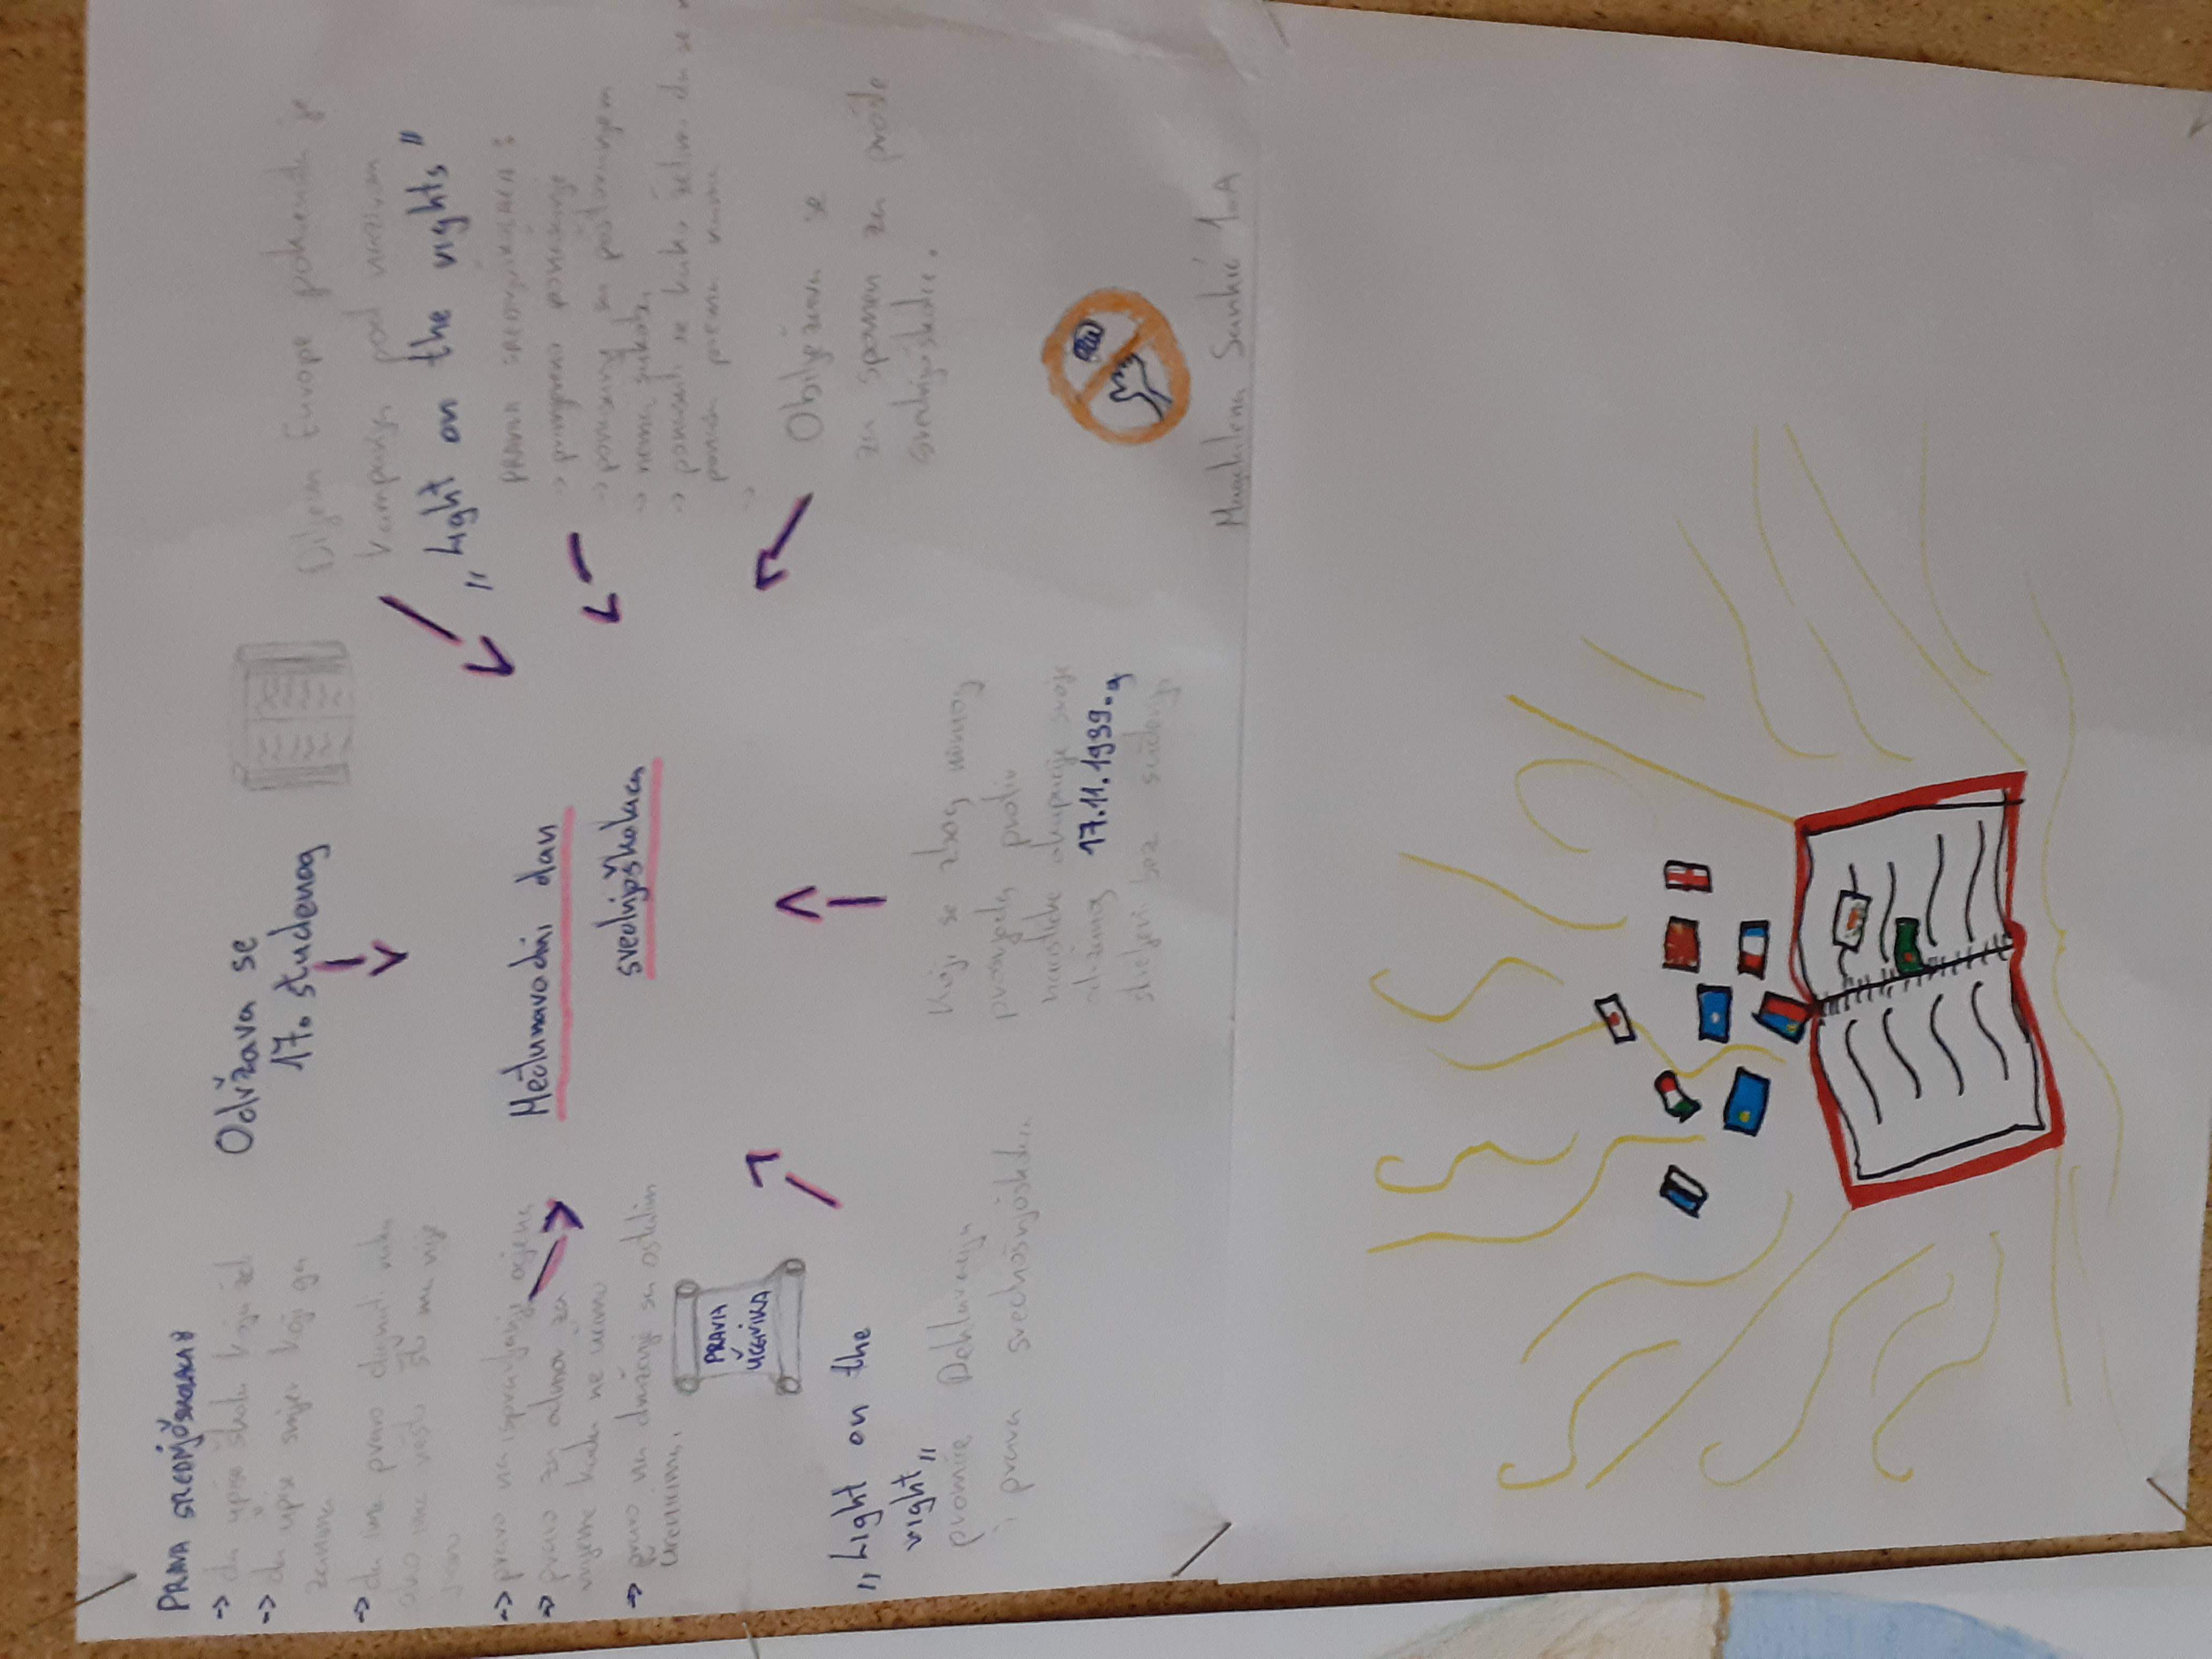 PRAVA SREDNJOŠKOLACA
-> da upiše školu koju želi
-> da upiše smjer koji ga
zanima
-> da ima pravo dignuti ruku
ako mu nešto što mu nije
jasno
-> pravo na ispravljanje ocjena
-> pravo za odmor za
vrijeme kada ne nema
-> pravo na druženje sa ostalim
učenicima.
PRAVIA
UČENIKA
„Light on the
right„
promiče Deklaraciju
i prava srednjoškolaca
Održava se
17. studenog
Međunarodni dan
srednjoškolaca
Koji se zbog mirnog
prosvjeda protiv
nacističke okupacije svoje
održanog 17.11.1939.g
strijeljani bez suđenja
Diljem Europe pokrenuta je
kampanja pod nazivom
„Light on the rights"
PRAVA SREDNJOŠKOLACA:
-> primjereno ponašanje
-> ponašanj sa poštovanjem
-> nema sukoba
-> ponašati se kako želim da se
ponaša prema nama
->
Obilježava se
za spomen za prošle
srednjoškolce.
Magdalena 1.A